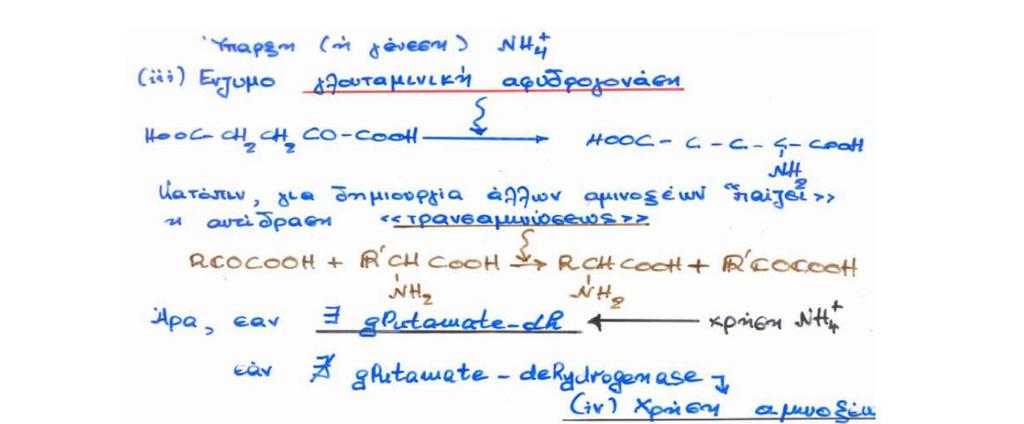 Ύπαρξη (ή γένεση) NH₄⁺
(iii) Ενζυμο γλουταμινική αφυδρογονάση
HOOC-CH₂CH₂CO-COOH → HOOC-C-C-C-COOH
NH₂
Κατόπιν, για δημιουργία άλλων αμινοξέων "παίζει>>
η αντίδραση <<τρανσαμινιώσεως>>
RCOCOOH + R'CH COOH → RCHCOOH + R'COCOOH
NH₂ NH₂
Άρα, εαν ∃ glutamate-dh ← χρήση NH₄⁺
εάν ∄ glutamate-dehydrogenase
(iv) Χρήση αμινοξέω